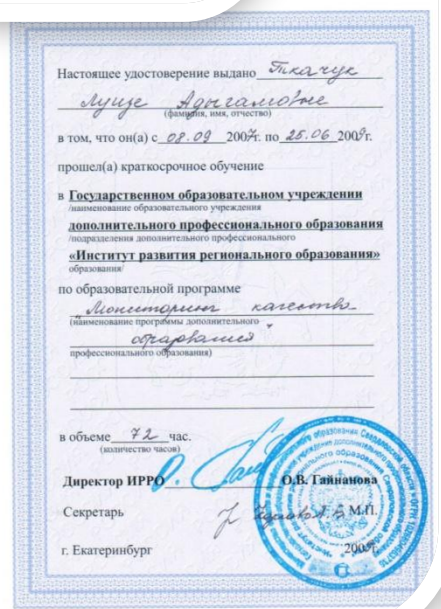 Настоящее удостоверение выдано Ткачук
Луизе Адыгамовне
(фамилия, имя, отчество)
в том, что он(а) с 08.09 2007г. по 25.06 2009г.
прошел(а) краткосрочное обучение
в Государственном образовательном учреждении
/наименование образовательного учреждения
дополнительного профессионального образования
/подразделения дополнительного профессионального
«Институт развития регионального образования»
образования/
по образовательной программе
"Мониторинг качества
(наименование программы дополнительного
образования"
профессионального образования)
в объеме 72 час.
(количество часов)
Директор ИРРО О.В. Гайнанова
Секретарь М.П.
г. Екатеринбург 2009г.